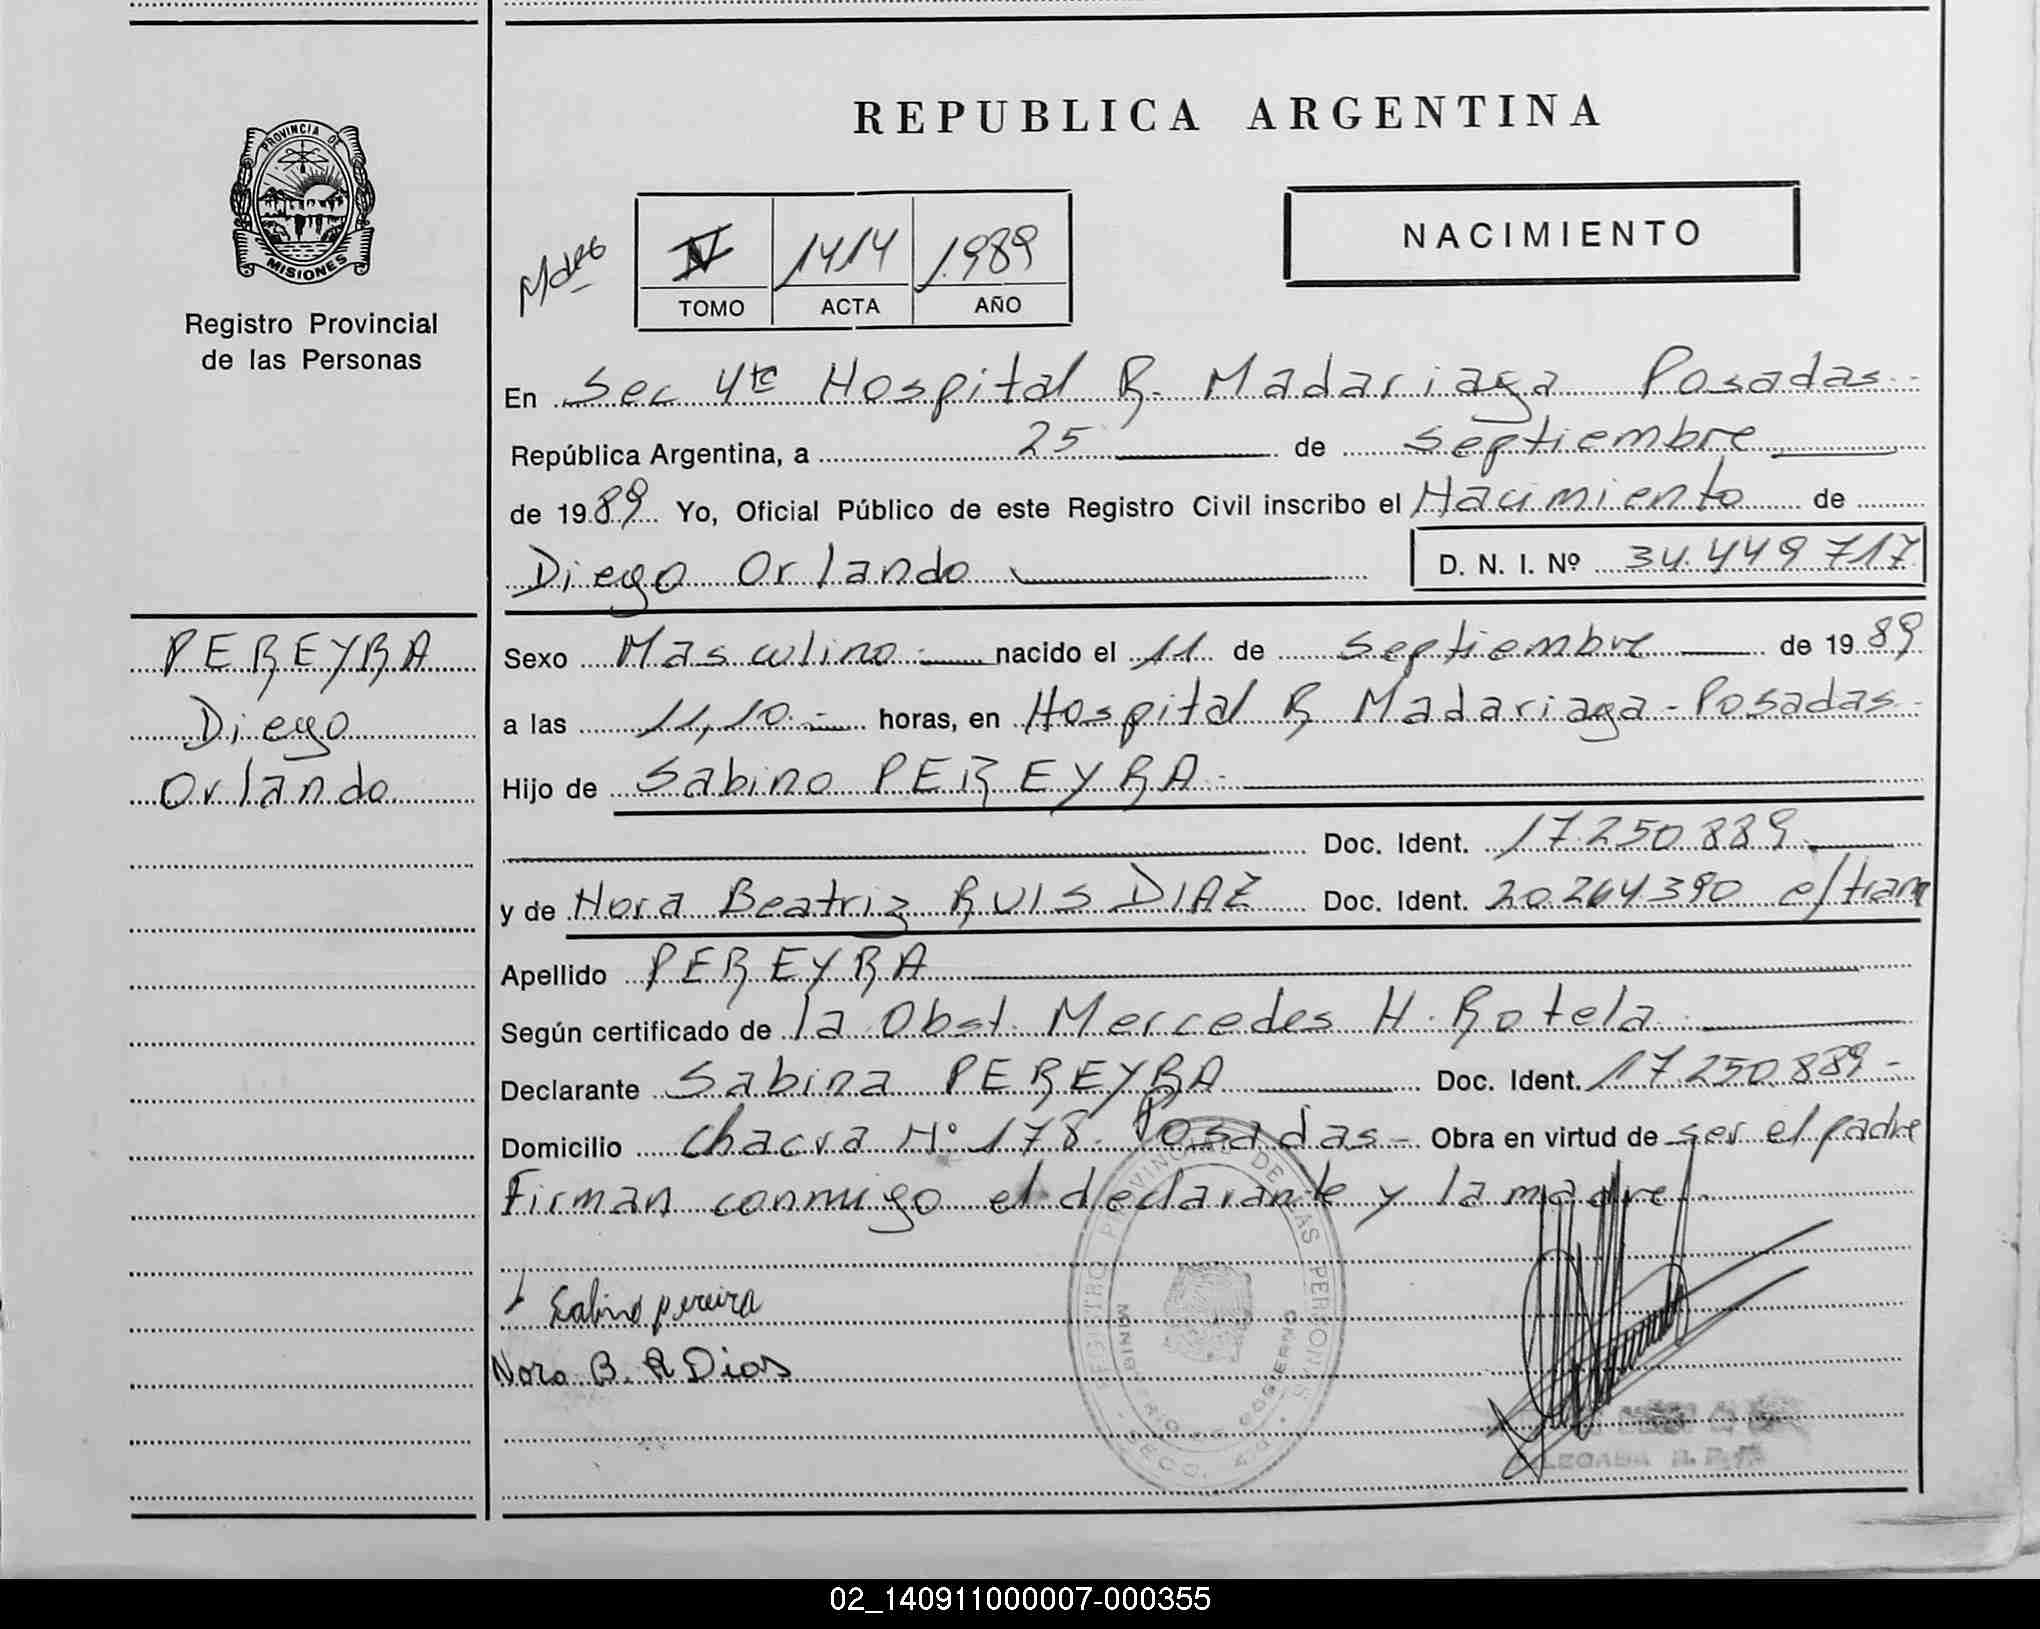 REPUBLICA ARGENTINA
PROVINCIA DE
MISIONES
Registro Provincial
de las Personas
NACIMIENTO
IV 1414 1989
TOMO ACTA AÑO
En Sec 4ta Hospital R. Madariaga Posadas.-
República Argentina, a 25 de septiembre
de 1989 Yo, Oficial Público de este Registro Civil inscribo el Nacimiento de
Diego Orlando D. N. I. Nº 34.449717
PEREYRA
Diego
Orlando
Sexo Masculino.- nacido el 11 de septiembre de 1989
a las 11,10.- horas, en Hospital R Madariaga - Posadas.-
Hijo de Sabino PEREYRA.-
Doc. Ident. 17.250.889.
y de Nora Beatriz RUIS DIAZ Doc. Ident. 20.264.390
Apellido PEREYRA
Según certificado de la Obst. Mercedes H. Rotela.
Declarante Sabina PEREYRA Doc. Ident. 17.250.889-
Domicilio Chacra Nº 178- Posadas- Obra en virtud de ser el padre
Firman conmigo el declarante y la madre.
REGISTRO PROVINCIAL DE LAS PERSONAS
MINISTERIO DE GOBIERNO
Sabino pereira
Nora B. R Dias
02_140911000007-000355